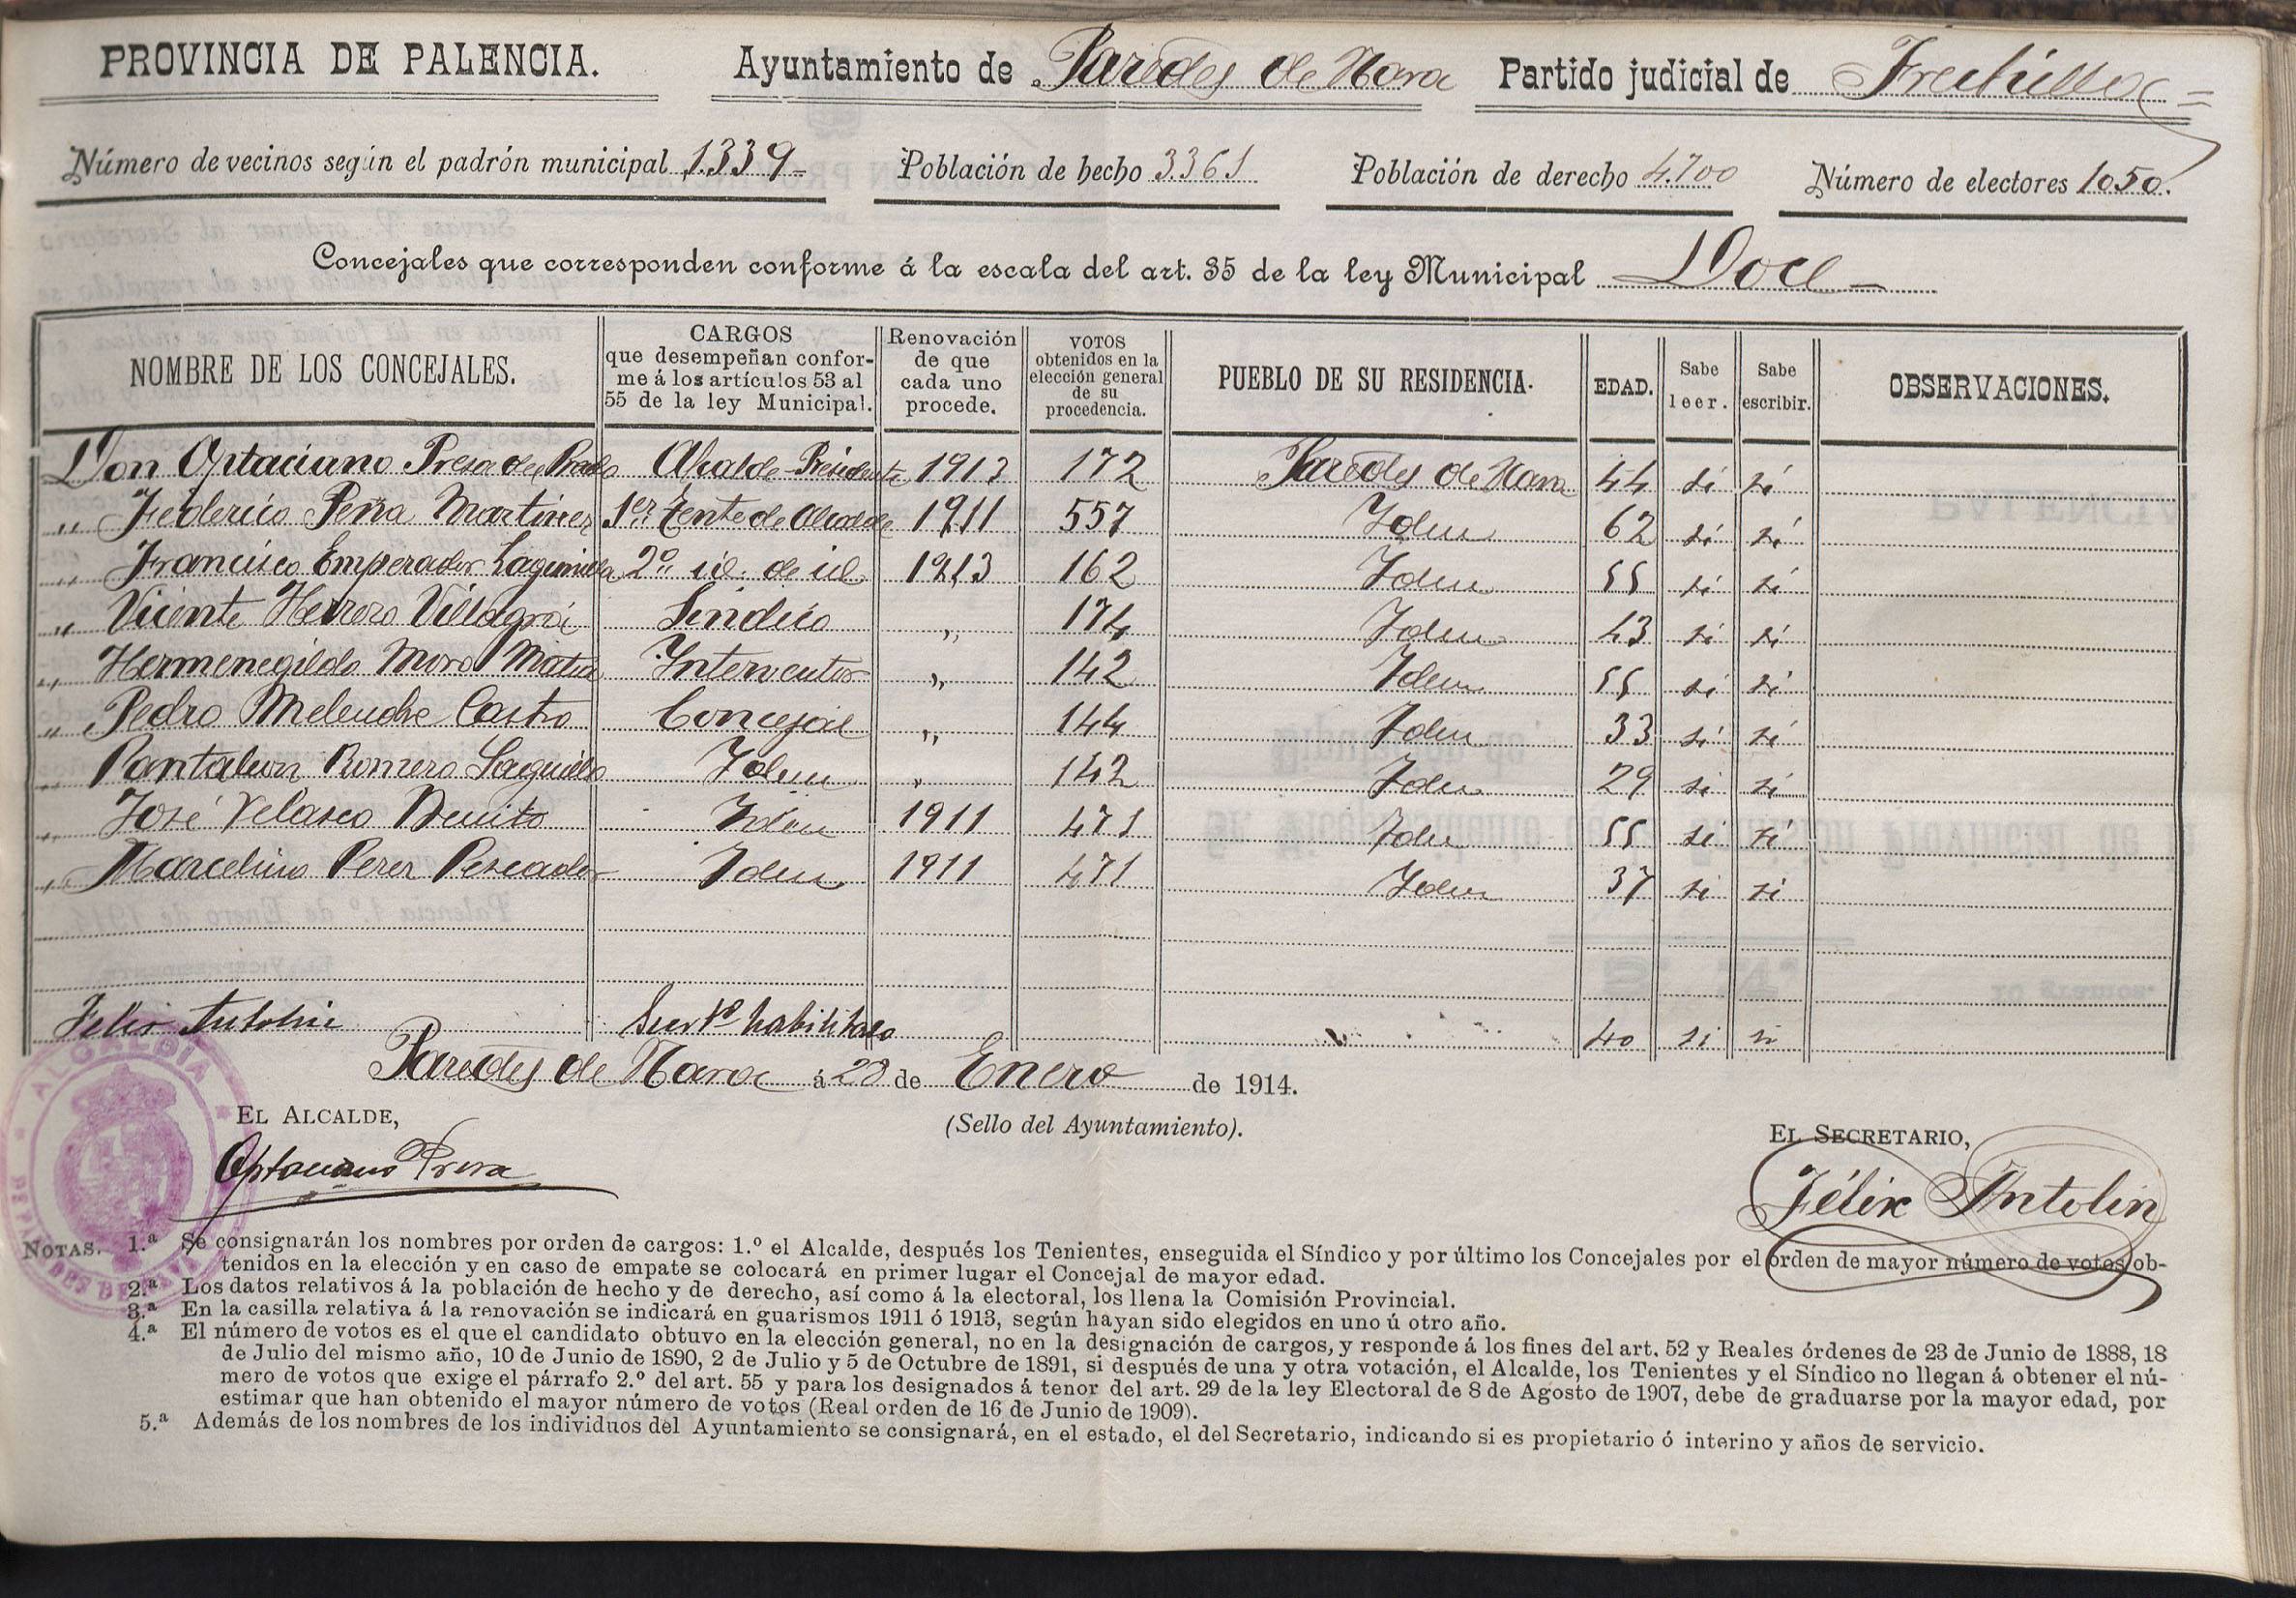 PROVINCIA DE PALENCIA. Ayuntamiento de Paredes de Nava Partido judicial de Frechilla
Número de vecinos según el padrón municipal 1.339 Población de hecho 3361 Población de derecho 4.700 Número de electores 1050.
Concejales que corresponden conforme á la escala del art. 35 de la ley Municipal Doce
NOMBRE DE LOS CONCEJALES. CARGOS que desempeñan conforme á los artículos 53 al 55 de la ley Municipal. Renovación de que cada uno procede. VOTOS obtenidos en la elección general de su procedencia. PUEBLO DE SU RESIDENCIA. EDAD. Sabe leer. Sabe escribir. OBSERVACIONES.
Don Optaciano Presa de Prado Alcalde-Presidente 1913 172 Paredes de Nava 44 si si
„ Federico Peña Martinez 1er Tente de Alcalde 1911 557 Idem 62 si si
„ Francisco Emperador Lagunilla 2º id. de id. 1913 162 Idem 55 si si
„ Vicente Herrero Villagrá Sindico „ 174 Idem 43 si si
„ Hermenegildo Moro Interventor „ 142 Idem 55 si si
„ Pedro Melendre Castro Concejal „ 144 Idem 33 si si
„ Pantaleon Romero „ Idem 142 Idem 29 si si
„ José Velasco Benito Idem 1911 471 Idem 55 si si
„ Marcelino Perez Pescador Idem 1911 471 Idem 37 si si
Felix Antolin Secrto habilitado 40 si si
Paredes de Nava á 28 de Enero de 1914.
EL ALCALDE, (Sello del Ayuntamiento). EL SECRETARIO,
Optaciano Presa Félix Antolin
ALCALDIA
NOTAS. 1.ª Se consignarán los nombres por orden de cargos: 1.º el Alcalde, después los Tenientes, enseguida el Síndico y por último los Concejales por el orden de mayor número de votos ob-
tenidos en la elección y en caso de empate se colocará en primer lugar el Concejal de mayor edad.
2.ª Los datos relativos á la población de hecho y de derecho, así como á la electoral, los llena la Comisión Provincial.
3.ª En la casilla relativa á la renovación se indicará en guarismos 1911 ó 1913, según hayan sido elegidos en uno ú otro año.
4.ª El número de votos es el que el candidato obtuvo en la elección general, no en la designación de cargos, y responde á los fines del art. 52 y Reales órdenes de 23 de Junio de 1888, 18
de Julio del mismo año, 10 de Junio de 1890, 2 de Julio y 5 de Octubre de 1891, si después de una y otra votación, el Alcalde, los Tenientes y el Síndico no llegan á obtener el nú-
mero de votos que exige el párrafo 2.º del art. 55 y para los designados á tenor del art. 29 de la ley Electoral de 8 de Agosto de 1907, debe de graduarse por la mayor edad, por
estimar que han obtenido el mayor número de votos (Real orden de 16 de Junio de 1909).
5.ª Además de los nombres de los individuos del Ayuntamiento se consignará, en el estado, el del Secretario, indicando si es propietario ó interino y años de servicio.